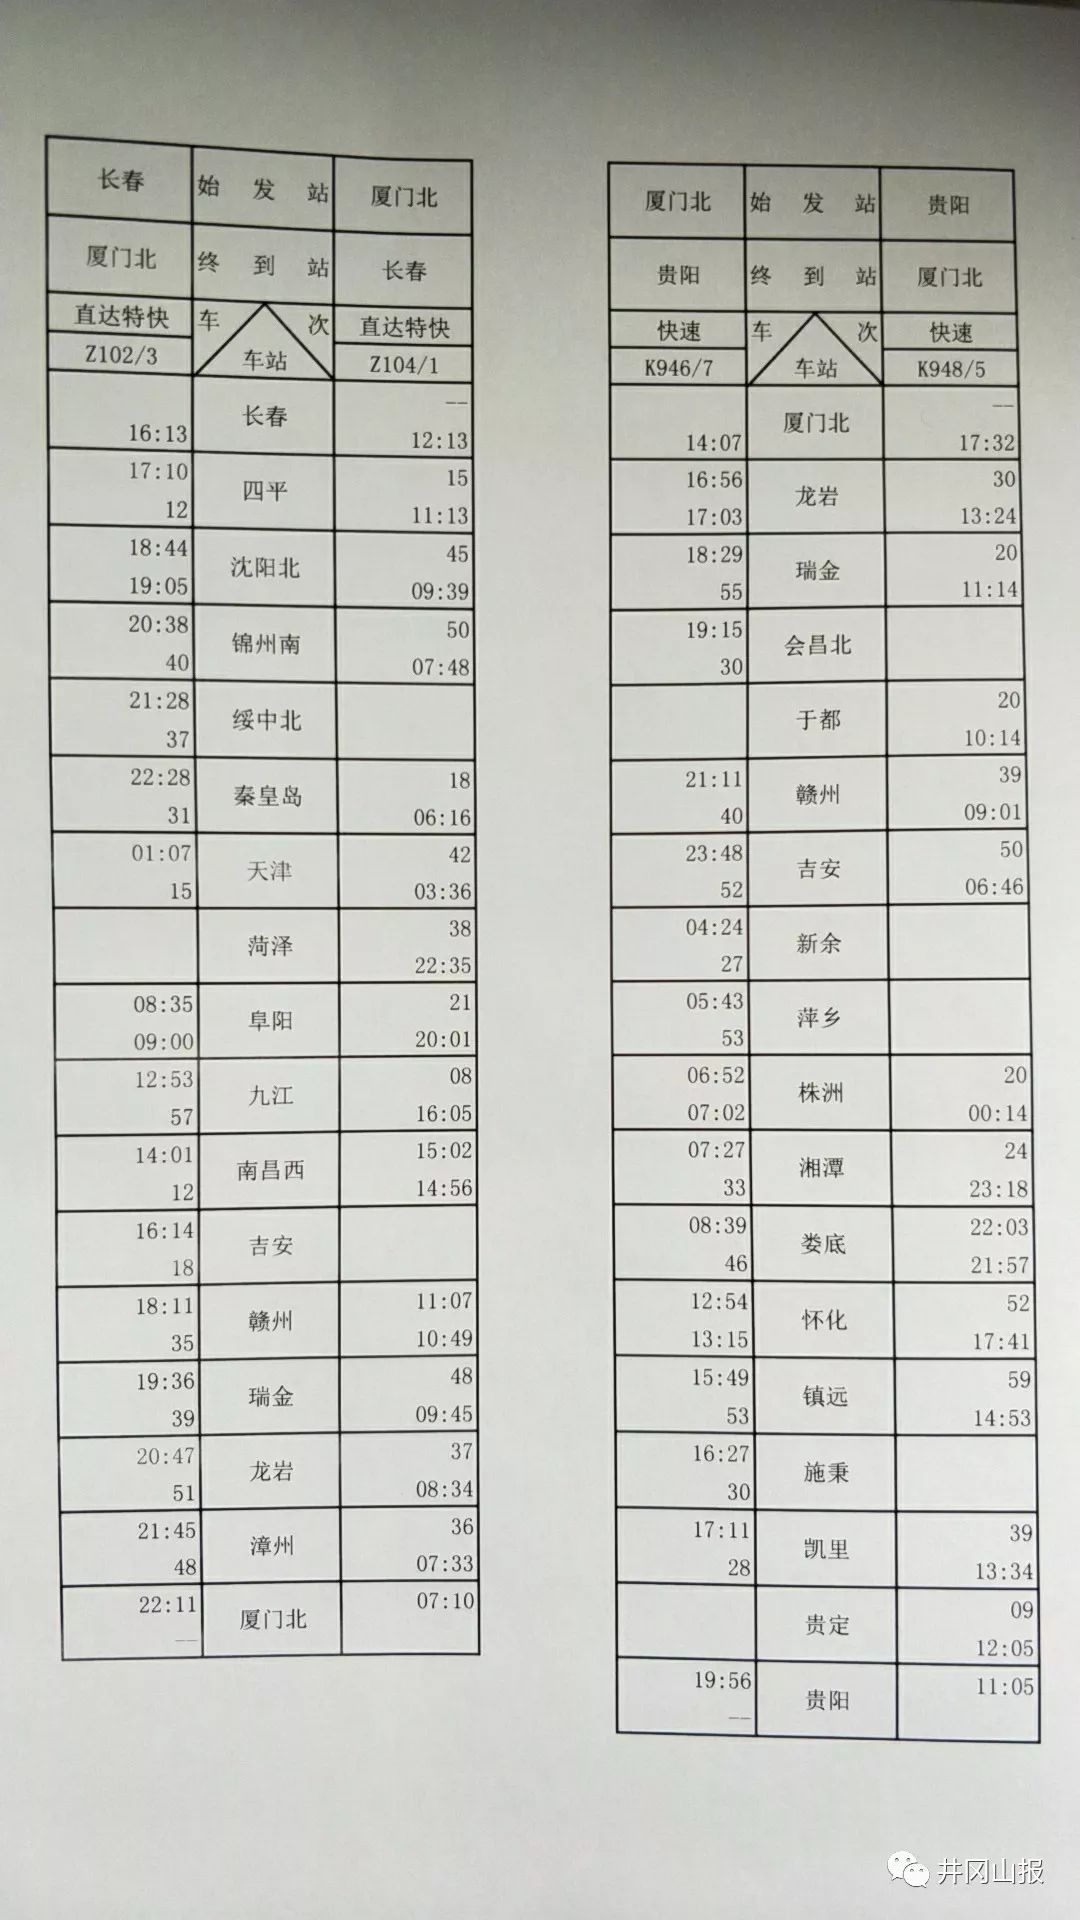 长春 始发站 厦门北
厦门北 终到站 长春
直达特快 车次 直达特快
Z102/3 车站 Z104/1
长春 ——
16:13 12:13
17:10 四平 15
12 11:13
18:44 沈阳北 45
19:05 09:39
20:38 锦州南 50
40 07:48
21:28 绥中北
37
22:28 秦皇岛 18
31 06:16
01:07 天津 42
15 03:36
菏泽 38
22:35
08:35 阜阳 21
09:00 20:01
12:53 九江 08
57 16:05
14:01 南昌西 15:02
12 14:56
16:14 吉安
18
18:11 赣州 11:07
35 10:49
19:36 瑞金 48
39 09:45
20:47 龙岩 37
51 08:34
21:45 漳州 36
48 07:33
22:11 厦门北 07:10
——
厦门北 始发站 贵阳
贵阳 终到站 厦门北
快速 车次 快速
K946/7 车站 K948/5
厦门北 ——
14:07 17:32
16:56 龙岩 30
17:03 13:24
18:29 瑞金 20
55 11:14
19:15 会昌北
30
于都 20
10:14
21:11 赣州 39
40 09:01
23:48 吉安 50
52 06:46
04:24 新余
27
05:43 萍乡
53
06:52 株洲 20
07:02 00:14
07:27 湘潭 24
33 23:18
08:39 娄底 22:03
46 21:57
12:54 怀化 52
13:15 17:41
15:49 镇远 59
53 14:53
16:27 施秉
30
17:11 凯里 39
28 13:34
贵定 09
12:05
19:56 贵阳 11:05
——
井冈山报